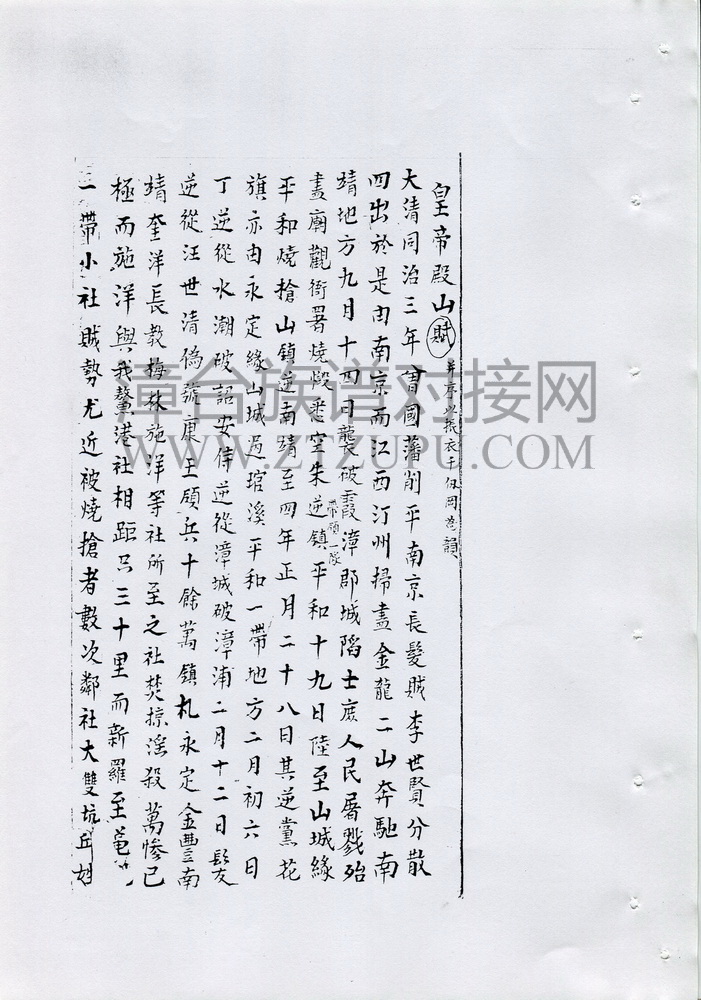 皇帝殿山賦 并序以振衣千仞岡為韻
大清同治三年曾國藩削平南京長髮賊李世賢分散
四出於是由南京而江西汀州掃盡金龍二山奔馳南
靖地方九日十四日襲破霞漳郡城陷士庶人民屠戮殆
盡廟觀衙署燒燬悉空朱逆鎮平和十九日陸至山城緣
帶領一隊
平和燒搶山鎮逆南靖至四年正月二十八日其逆黨花
旗亦由永定緣山城過琯溪平和一帶地方二月初六日
丁逆從水潮破詔安侍逆從漳城破漳浦二月十二日髮
逆從汪世清偽號康王領兵十餘萬鎮札永定金豐南
靖奎洋長教梅林施洋等社所至之社焚掠淫殺萬慘已
極而施洋與我鰲港社相距只三十里而新羅至
一帶小社賊勢尤近被燒搶者數次鄰社大雙坑丘姓
漳台族谱对接网
WWW.ZTZUPU.COM